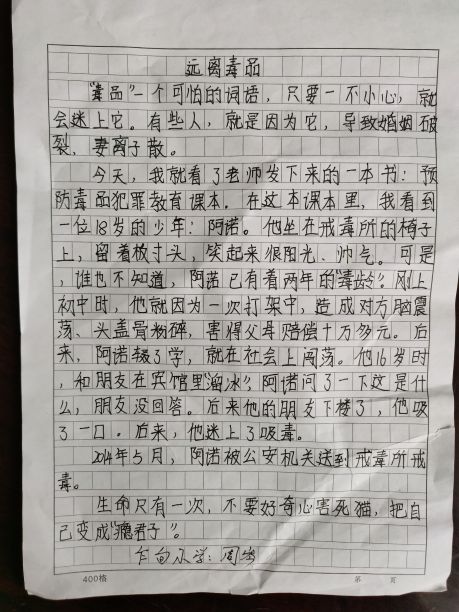 远离毒品
“毒品”一个可怕的词语，只要一不小心，就
会迷上它。有些人，就是因为它，导致婚姻破
裂，妻离子散。
今天，我就看了老师发下来的一本书：预
防毒品犯罪教育课本。在这本课本里，我看到
一位18岁的少年：阿诺。他坐在戒毒所的椅子
上，留着板寸头，笑起来很阳光、帅气。可是
，谁也不知道，阿诺已有着两年的“毒龄”。刚上
初中时，他就因为一次打架中，造成对方脑震
荡、头盖骨粉碎，害得父母赔偿十万多元。后
来，阿诺辍了学，就在社会上闯荡。他16岁时
，和朋友在宾馆里“溜冰”，阿诺问了一下这是什
么，朋友没回答。后来他的朋友下楼了，他吸
了一口。后来，他迷上了吸毒。
2014年5月，阿诺被公安机关送到戒毒所戒
毒。
生命只有一次，不要好奇心害死猫，把自
己变成“瘾君子”。
小学：周
400格 第 页